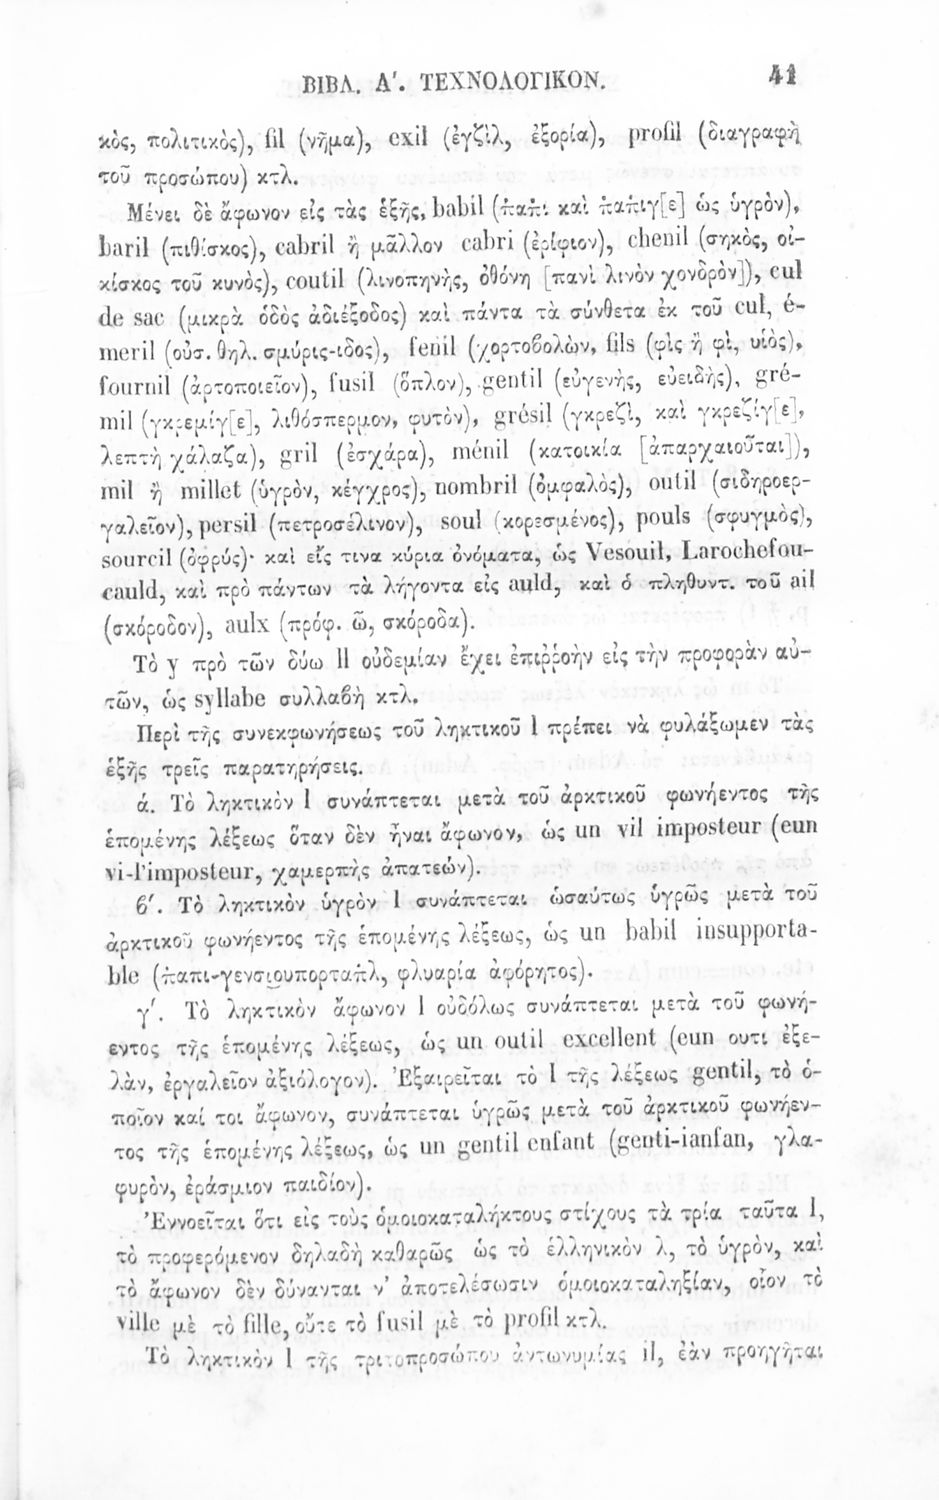 ΒΙΒΛ. Α΄. ΤΕΧΝΟΛΟΓΙΚΟΝ. 41
κὸς, πολιτικὸς), fil (νῆμα), exil (ἐγζὶλ, ἐξορία), profil (διαγραφὴ
τοῦ προσώπου) κτλ.
Μένει δὲ ἄφωνον εἰς τὰς ἑξῆς, babil (παπὶ καὶ παπιγ[ε] ὡς ὑγρὸν),
baril (πιθίσκος), cabril ἢ μᾶλλον cabri (ἐρίφιον), chenil (σηκὸς, οἰ-
κίσκος τοῦ κυνὸς), coutil (λινοπηνὴς, ὀθόνη [πανὶ λινὸν χονδρὸν]), cul
de sac (μικρὰ ὁδὸς ἀδιέξοδος) καὶ πάντα τὰ σύνθετα ἐκ τοῦ cul, é-
meril (οὐσ. θηλ. σμύρις-ιδος), fenil (χορτοβολὼν, fils (φὶς ἢ φὶ, υἱὸς),
fournil (ἀρτοποιεῖον), fusil (ὅπλον), gentil (εὐγενὴς, εὐειδὴς), gré-
mil (γκρεμίγ[ε], λιθόσπερμον, φυτὸν), grésil (γκρεζὶ, καὶ γκρεζίγ[ε],
λεπτὴ χάλαζα), gril (ἐσχάρα), ménil (κατοικία [ἀπαρχαιοῦται]),
mil ἢ millet (ὑγρὸν, κέγχρος), nombril (ὀμφαλὸς), outil (σιδηροερ-
γαλεῖον), persil (πετροσέλινον), soul (κορεσμένος), pouls (σφυγμὸς),
sourcil (ὀφρύς)· καὶ εἴς τινα κύρια ὀνόματα, ὡς Vesouil, Larochefou-
cauld, καὶ πρὸ πάντων τὰ λήγοντα εἰς auld, καὶ ὁ πληθυντ. τοῦ ail
(σκόροδον), aulx (πρόφ. ῶ, σκόροδα).
Τὸ y πρὸ τῶν δύω ll οὐδεμίαν ἔχει ἐπιῤῥοὴν εἰς τὴν προφορὰν αὐ-
τῶν, ὡς syllabe συλλαβὴ κτλ.
Περὶ τῆς συνεκφωνήσεως τοῦ ληκτικοῦ l πρέπει νὰ φυλάξωμεν τὰς
ἑξῆς τρεῖς παρατηρήσεις.
ά. Τὸ ληκτικὸν l συνάπτεται μετὰ τοῦ ἀρκτικοῦ φωνήεντος τῆς
ἑπομένης λέξεως ὅταν δὲν ἦναι ἄφωνον, ὡς un vil imposteur (eun
vi-l'imposteur, χαμερπὴς ἀπατεών).
β΄. Τὸ ληκτικὸν ὑγρὸν l συνάπτεται ὡσαύτως ὑγρῶς μετὰ τοῦ
ἀρκτικοῦ φωνήεντος τῆς ἑπομένης λέξεως, ὡς un babil insupporta-
ble (παπι-γενσιουπορταπλ, φλυαρία ἀφόρητος).
γ΄. Τὸ ληκτικὸν ἄφωνον l οὐδόλως συνάπτεται μετὰ τοῦ φωνή-
εντος τῆς ἑπομένης λέξεως, ὡς un outil excellent (eun ουτι ἐξε-
λὰν, ἐργαλεῖον ἀξιόλογον). Ἐξαιρεῖται τὸ l τῆς λέξεως gentil, τὸ ὁ-
ποῖον καί τοι ἄφωνον, συνάπτεται ὑγρῶς μετὰ τοῦ ἀρκτικοῦ φωνήεν-
τος τῆς ἑπομένης λέξεως, ὡς un gentil enfant (genti-ianfan, γλα-
φυρὸν, ἐράσμιον παιδίον).
Ἐννοεῖται ὅτι εἰς τοὺς ὁμοιοκαταλήκτους στίχους τὰ τρία ταῦτα l,
τὸ προφερόμενον δηλαδὴ καθαρῶς ὡς τὸ ἑλληνικὸν λ, τὸ ὑγρὸν, καὶ
τὸ ἄφωνον δὲν δύνανται ν' ἀποτελέσωσιν ὁμοιοκαταληξίαν, οἷον τὸ
ville μὲ τὸ fille, οὔτε τὸ fusil μὲ τὸ profil κτλ.
Τὸ ληκτικὸν l τῆς τριτοπροσώπου ἀντωνυμίας il, ἐὰν προηγῆται